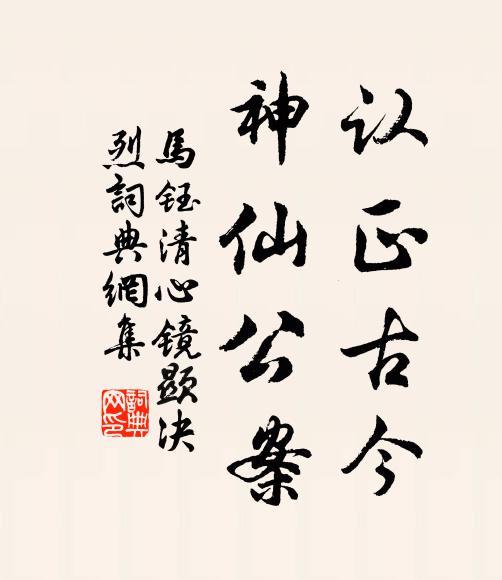 认正古今
神仙公案
馬钰清心镜顯决
烈詞典網集
詞典网印